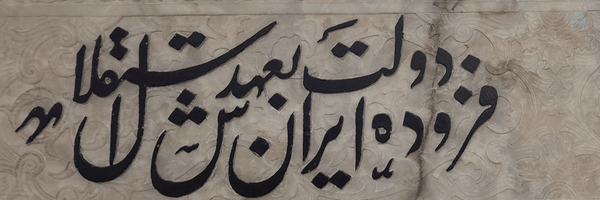 فزوده دولت ایران بعهدش استقلال